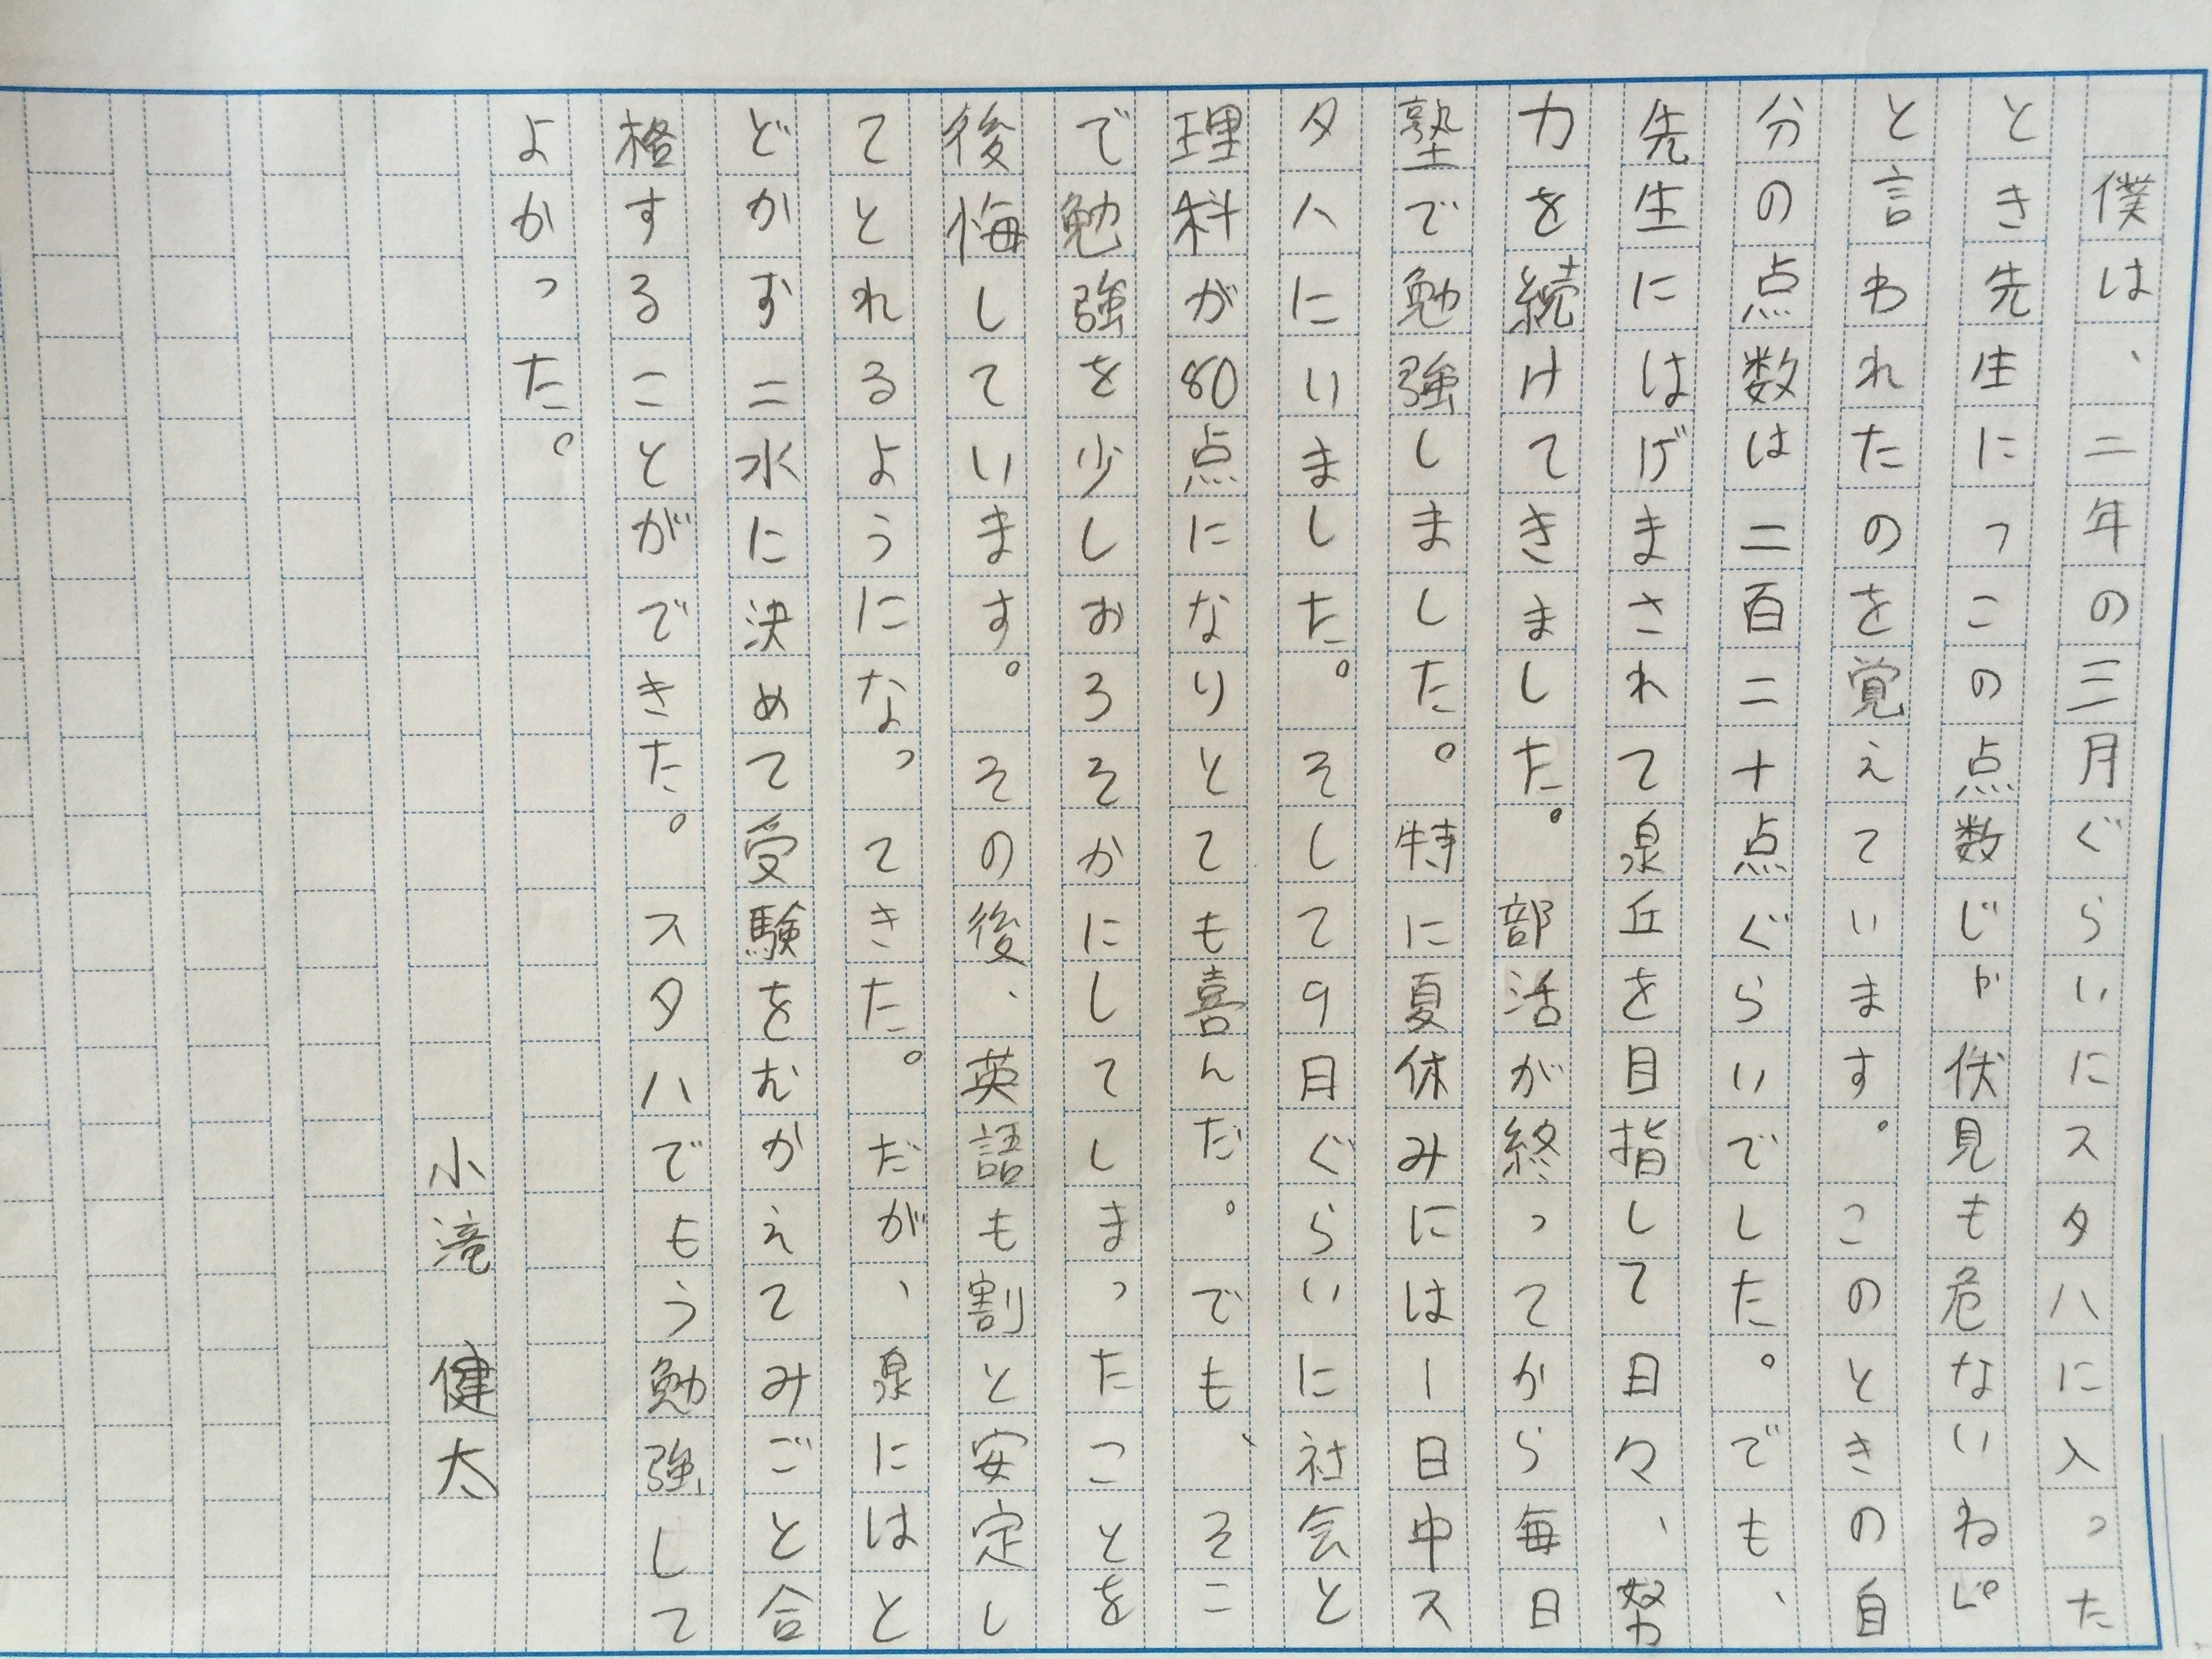 僕は、二年の三月ぐらいにスタハに入った
とき先生にっこの点数じゃ伏見も危ないねじ
と言われたのを覚えています。このときの自
分の点数は二百二十点ぐらいでした。でも、
先生にはげまされて泉丘を目指して日々、努
力を続けてきました。部活が終ってから毎日
塾で勉強しました。特に夏休みには一日中ス
タハにいました。そして9月ぐらいに社会と
理科が80点になりとても喜んだ。でも、そこ
で勉強を少しおろそかにしてしまったことを
後悔しています。その後、英語も割と安定し
てとれるようになってきた。だが、泉にはと
どかず二水に決めて受験をむかえてみごと合
格することができた。スタハでもう勉強して
よかった。
小滝 健太